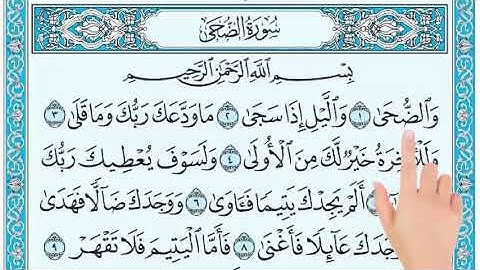 سُورَةُ الضُّحَىٰ
بِسْمِ اللَّهِ الرَّحْمَٰنِ الرَّحِيمِ
وَٱلضُّحَىٰ ١ وَٱلَّيْلِ إِذَا سَجَىٰ ٢ مَا وَدَّعَكَ رَبُّكَ وَمَا قَلَىٰ ٣
وَلَلْأٓخِرَةُ خَيْرٌ لَّكَ مِنَ ٱلْأُولَىٰ ٤ وَلَسَوْفَ يُعْطِيكَ رَبُّكَ
أَلَمْ يَجِدْكَ يَتِيمًا فَـَٔاوَىٰ ٦ وَوَجَدَكَ ضَآلًّا فَهَدَىٰ
عَآئِلًا فَأَغْنَىٰ ٨ فَأَمَّا ٱلْيَتِيمَ فَلَا تَقْهَرْ ٩